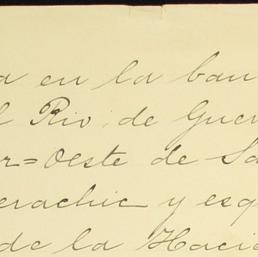 a en la ban
l Rio de Guer
r=oeste de Sa
erachic y esq
de la Hacie